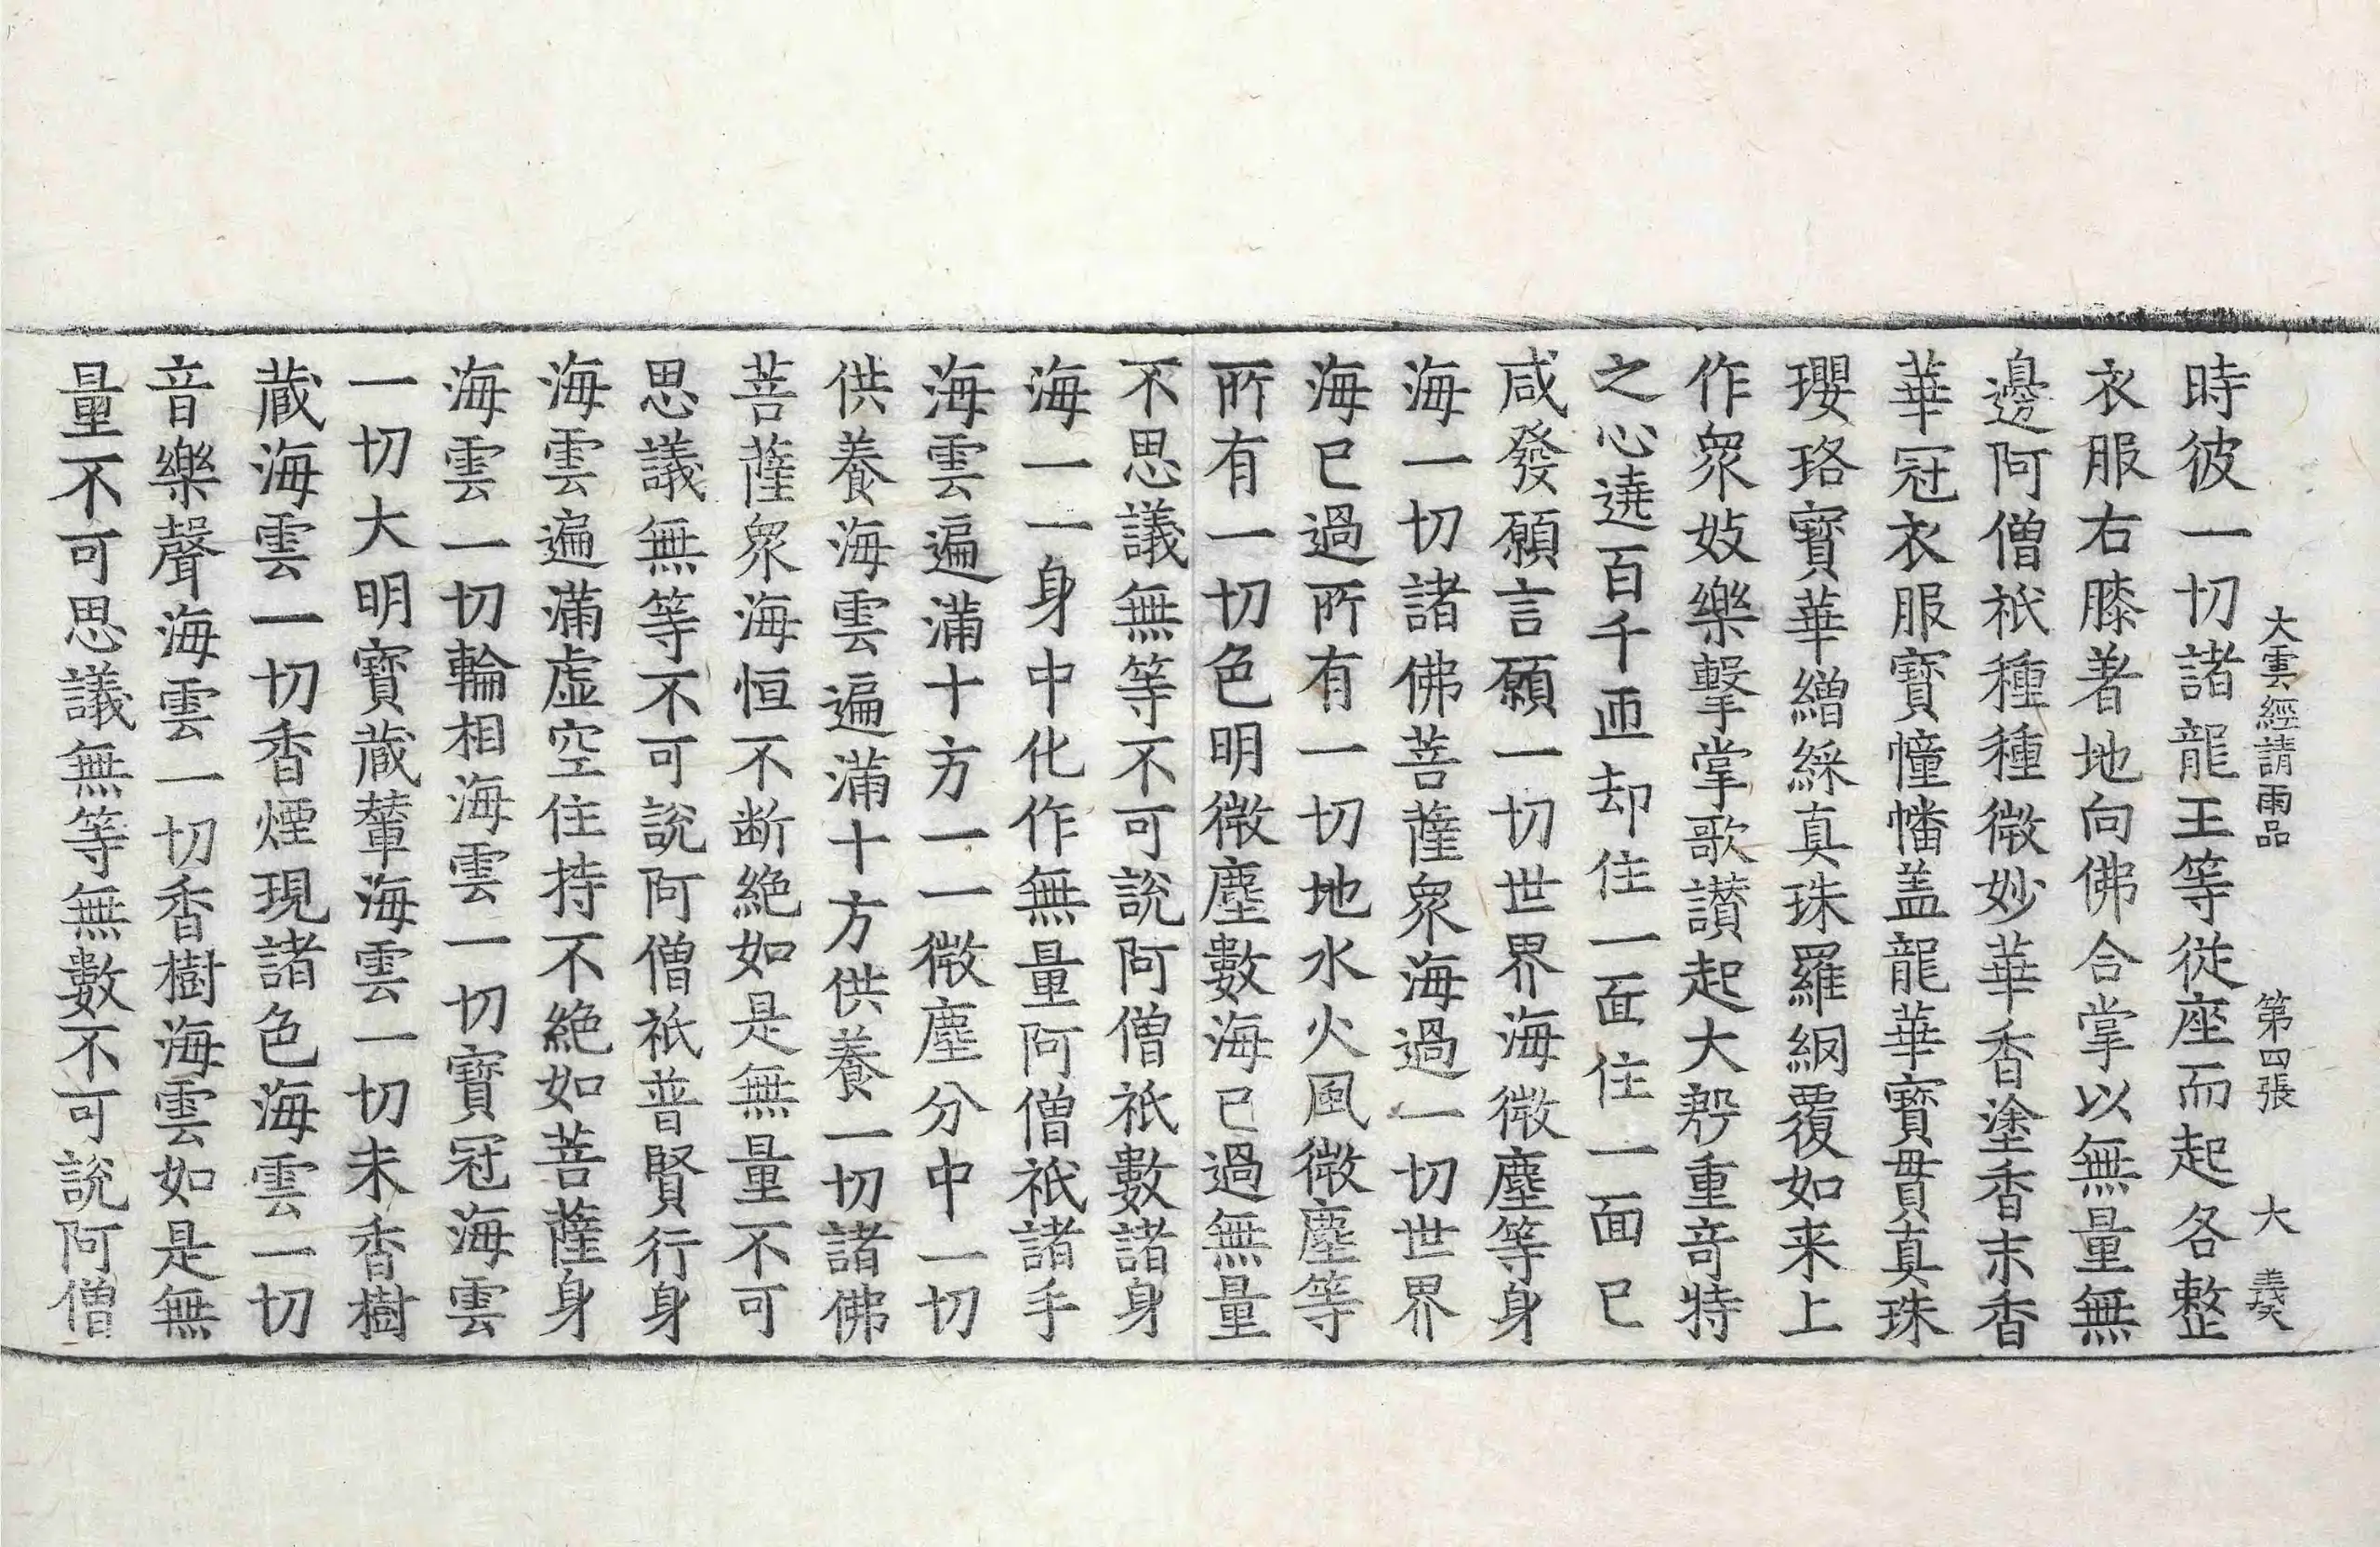 大雲經請雨品 第四張 大 義
時彼一切諸龍王等從座而起各整
衣服右膝著地向佛合掌以無量無
邊阿僧祇種種微妙華香塗香末香
華冠衣服寶幢幡盖龍華寶貫真珠
瓔珞寶華繒綵真珠羅網覆如来上
作衆妓樂擊掌歌讃起大㷇重奇特
之心遶百千匝却住一面住一面已
咸發願言願一切世界海微塵等身
海一切諸佛菩薩衆海過一切世界
海已過所有一切地水火風微塵等
所有一切色明微塵數海已過無量
不思議無等不可說阿僧祇數諸身
海一一身中化作無量阿僧祇諸手
海雲遍滿十方一一微塵分中一切
供養海雲遍滿十方供養一切諸佛
菩薩衆海恒不断絶如是無量不可
思議無等不可說阿僧祇普賢行身
海雲遍滿虚空住持不絶如菩薩身
海雲一切輪相海雲一切寶冠海雲
一切大明寶蔵輦海雲一切末香樹
蔵海雲一切香煙現諸色海雲一切
音樂聲海雲一切香樹海雲如是無
量不可思議無等無數不可說阿僧